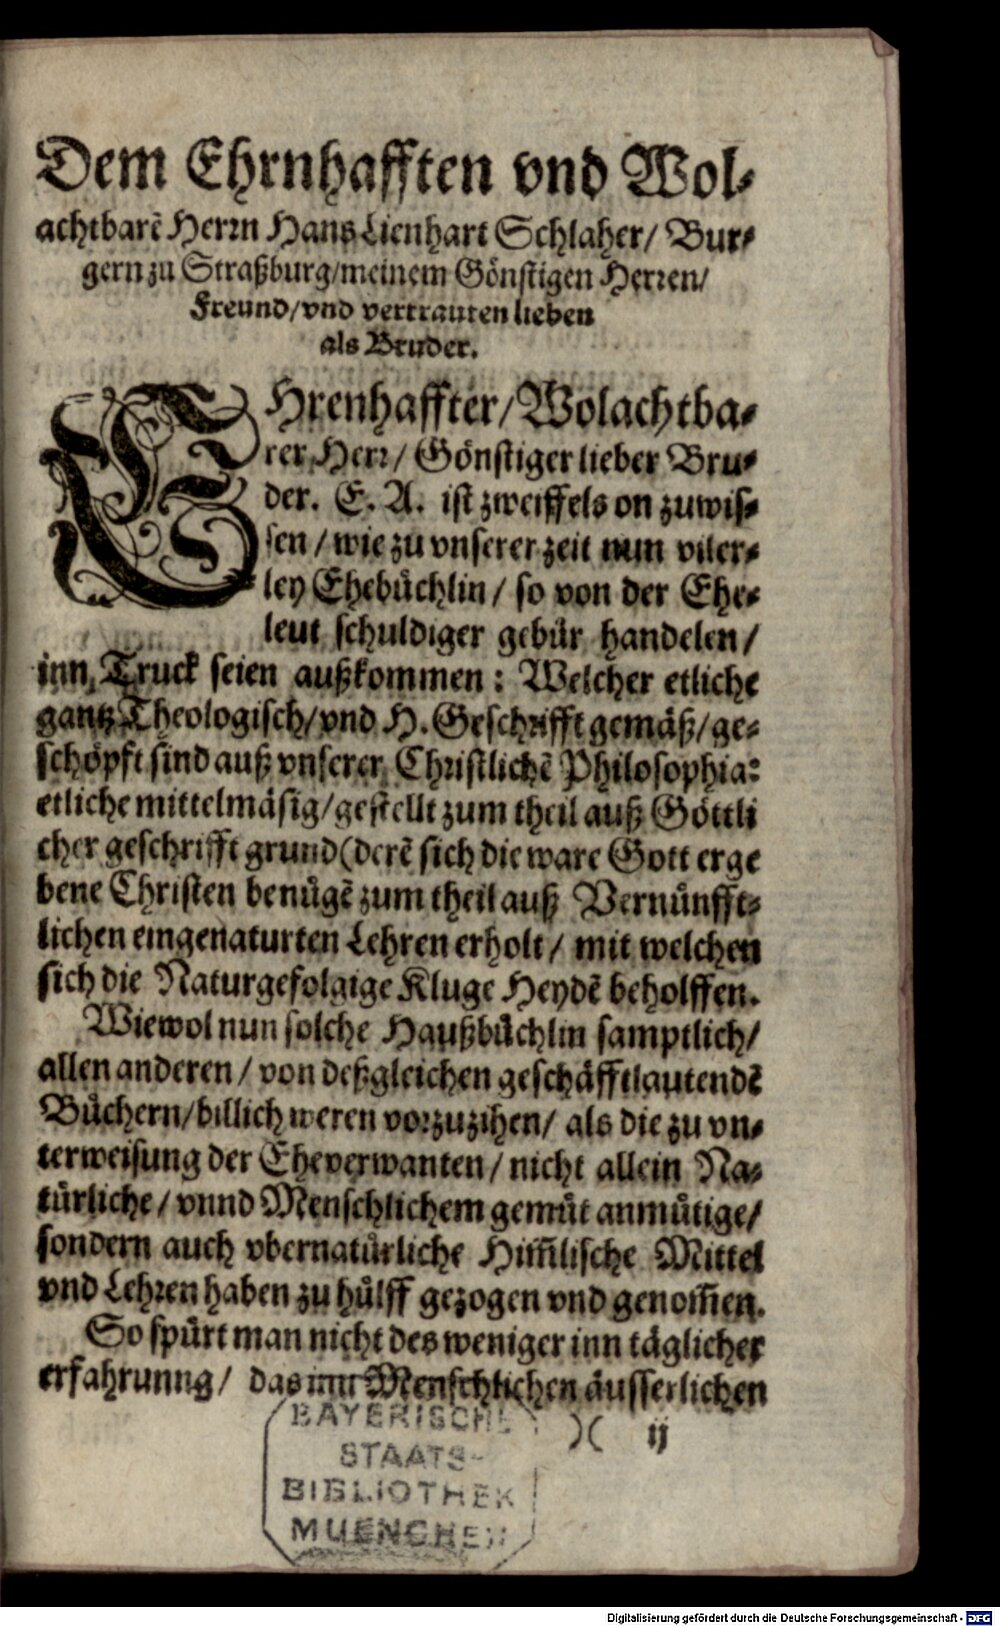 Dem Ehrnhafften vnd Wol-
achtbarẽ Herrn Hans Lienhart Schlaher/ Bur-
gern zu Straßburg/meinem Gönstigen Herren/
Freund/vnd vertrauten lieben
als Bruder.
EHrenhaffter/Wolachtba-
rer Herr/ Gönstiger lieber Bru-
der. E. A. ist zweiffels on zuwis-
sen / wie zu vnserer zeit nun viler-
ley Ehebüchlin / so von der Ehe-
leut schuldiger gebür handelen /
inn Truck seien außkommen : Welcher etliche
gantz Theologisch/vnd H. Geschrifft gemäß/ge-
schöpft sind auß vnserer Christlichẽ Philosophia:
etliche mittelmäsig/gestellt zum theil auß Göttli
cher geschrifft grund(derẽ sich die ware Gott erge
bene Christen benügẽ zum theil auß Vernünfft-
lichen eingenaturten Lehren erholt / mit welchen
sich die Naturgefolgige Kluge Heydẽ beholffen.
Wiewol nun solche Haußbüchlin samptlich/
allen anderen / von deßgleichen geschäfftlautendẽ
Büchern/billich weren vorzuzihen/ als die zu vn-
terweisung der Eheverwanten / nicht allein Na-
türliche / vnnd Menschlichem gemüt anmütige/
sondern auch vbernatürliche Him̃lische Mittel
vnd Lehren haben zu hülff gezogen vnd genom̃en.
So spürt man nicht des weniger inn täglicher
erfahrunng / das imm Menschlichen äusserlichen
)( ij
BAYERISCHE
STAATS-
BIBLIOTHEK
MUENCHEN
Digitalisierung gefördert durch die Deutsche Forschungsgemeinschaft - DFG